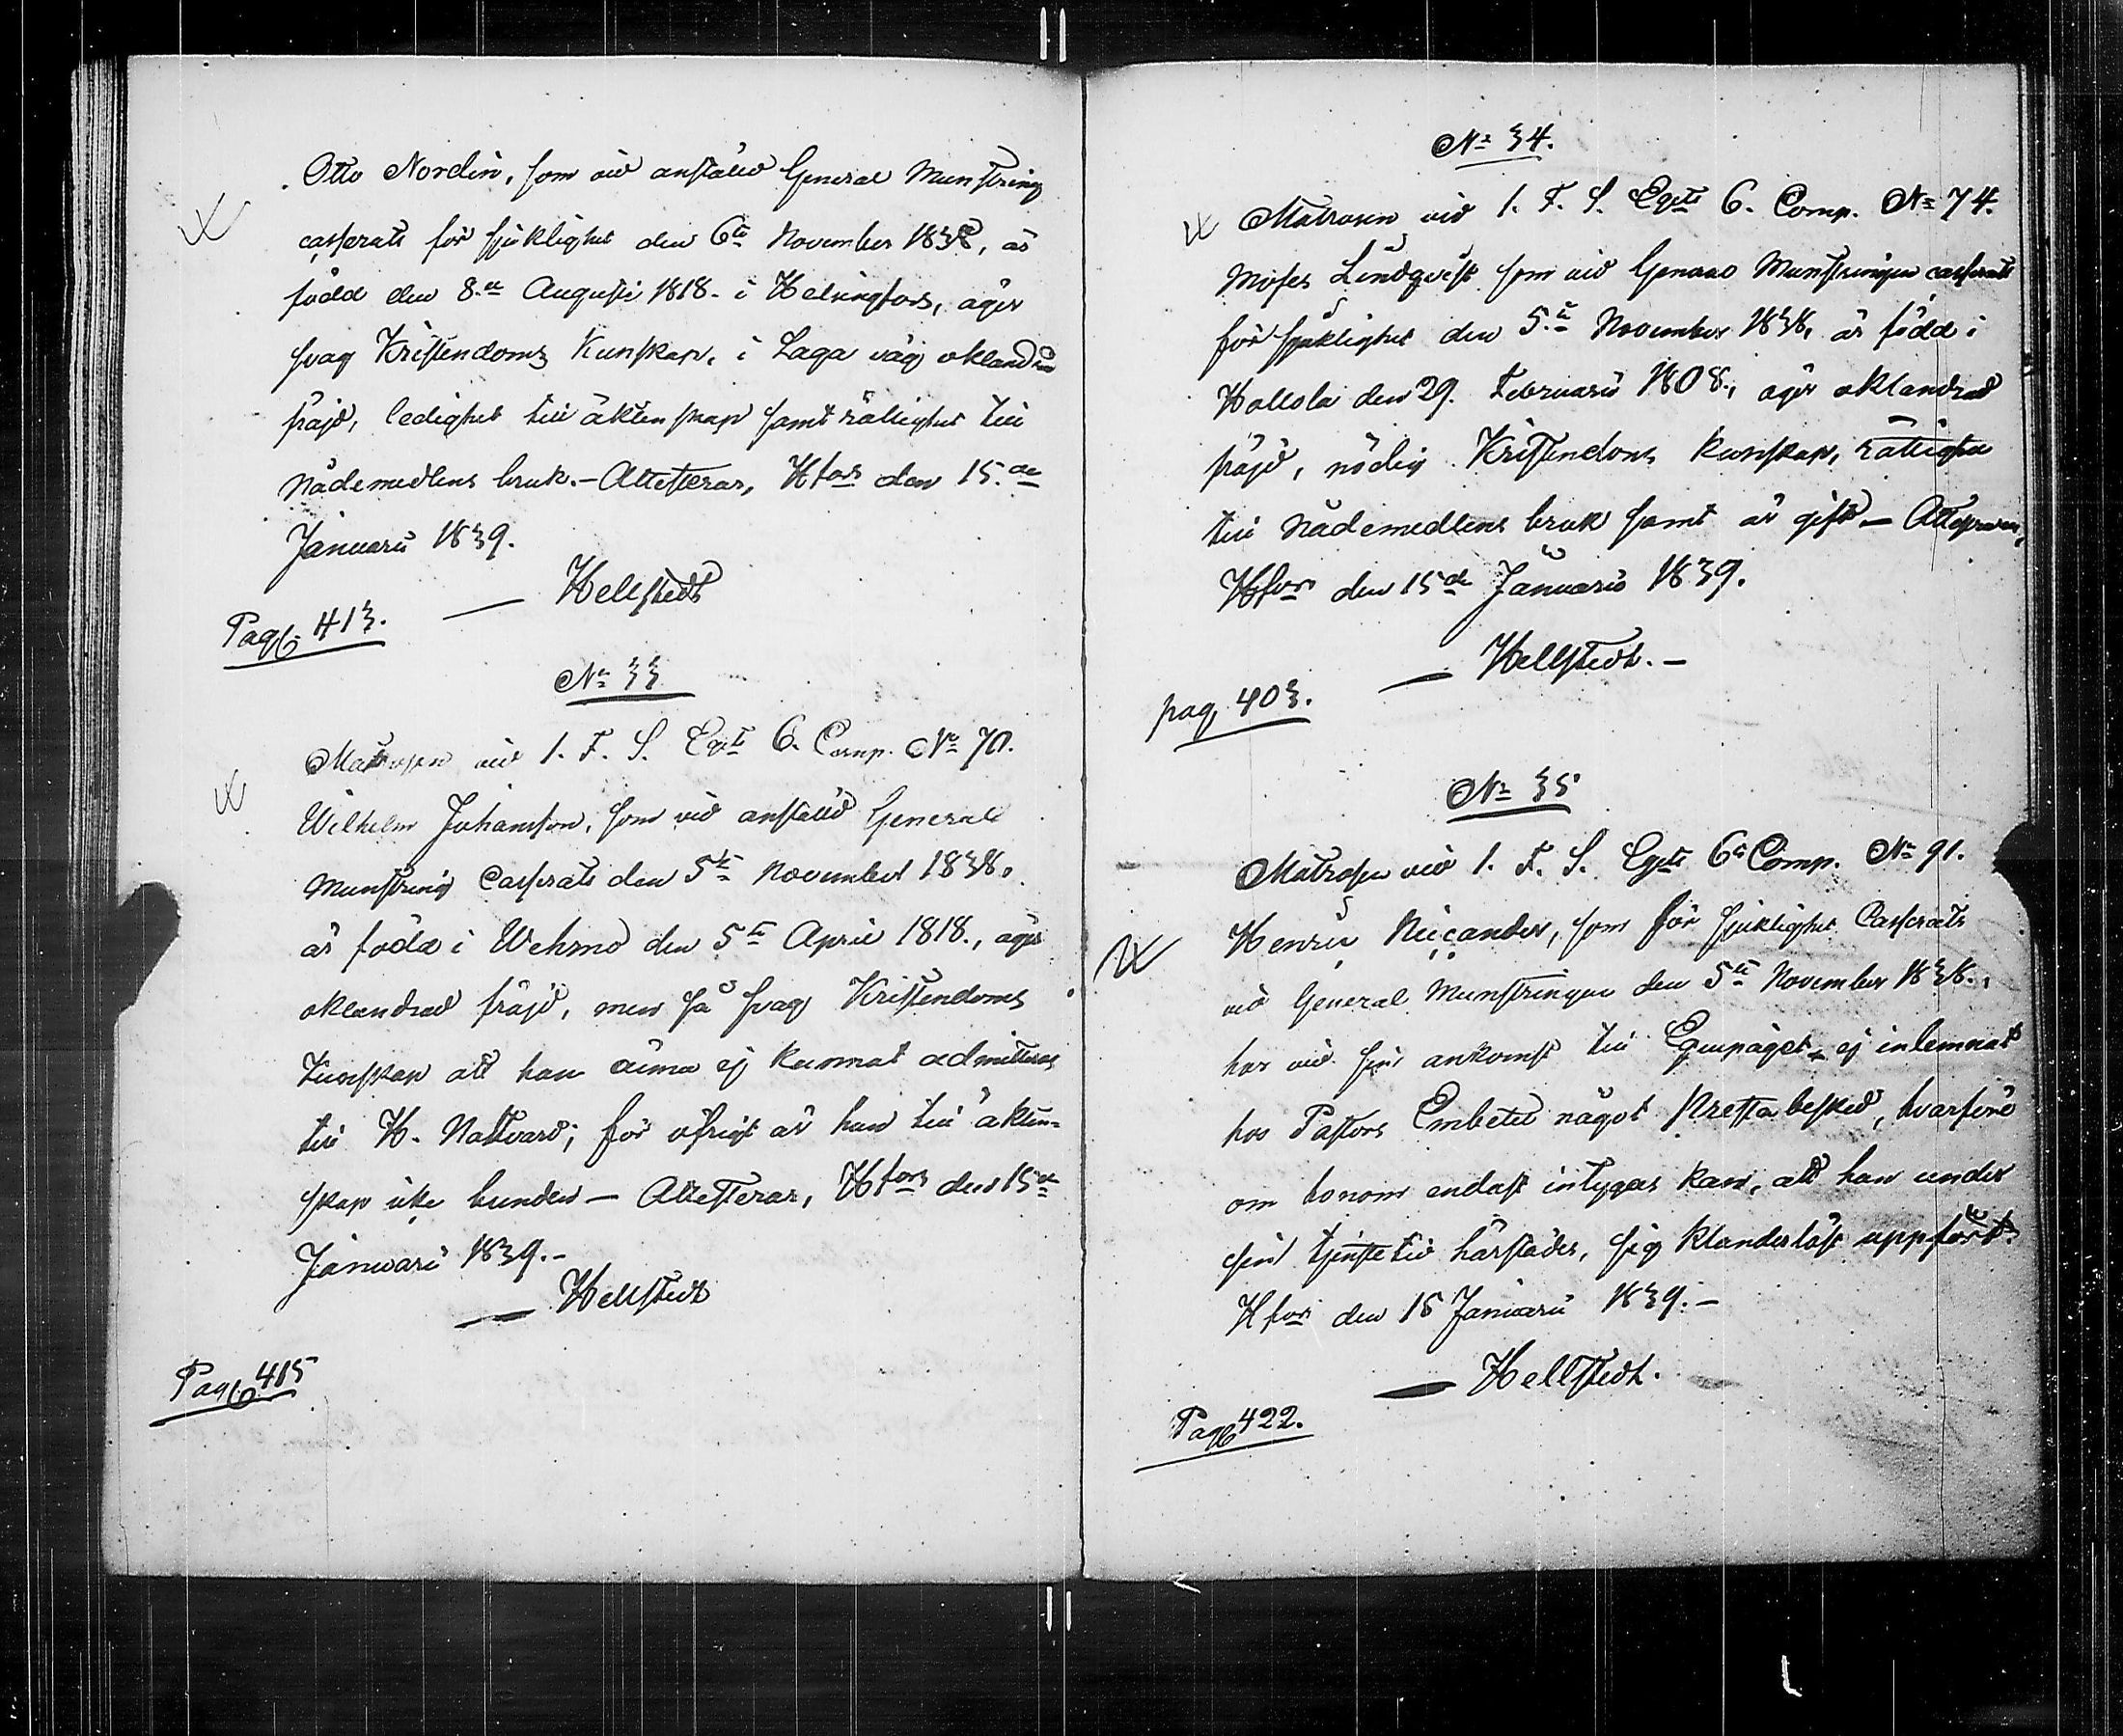 Otto Nordin, som vid anställd General Munstring
casserats för sjuklighet den 6te November 1838, är
född den 8de Augusti 1818 i Helsingfors, äger
svag Kristendoms Kunskap, i Laga väg oklandrad
fräjd, ledighet till äktenskap samt rättighet till
Nådemedlens bruk.- Attesteras, Hfors den 15de
Januarii 1839.
— Hellstedt
Pag. 413.
No 33
Matrosen vid 1. F. S. Eqts 6. Comp. No 70.
Wilhelm Johansson, som vid anställd General
Munstring Casserats den 5te November 1838,
är född i Wehmo den 5te April 1818., äger
oklandrad fräjd, men så svag Kristendoms
Kunskap att han ännu ej kunnat admitteras
till H. Nattvard; för öfrigt är han till äkten-
skap icke bunden — Attesteras, Hfors den 15de
Januari 1839.-
— Hellstedt
Pag. 415
No 34.
Matrosen vid 1. F. S. Eqts 6. Comp. No 74.
Moses Lindqvist som vid General Munstringen casserats
för sjuklighet den 5te November 1838, är född i
Hollola den 29. Februarii 1808., äger oklandrad
fräjd, nödig Kristendoms kunskap, rättighet
till Nådemedlens bruk samt är gift — Attesteras,
Hfors den 15de Januarii 1839.
— Hellstedt.-
pag. 403.
No 35
Matrosen vid 1. F. S. Eqts 6te Comp. No 91.
Henric Nicander, som för sjuklighet Casserats
vid General Munstringen den 5te November 1838.,
har vid sin ankomst till Equipaget ej inlemnat
hos Pastors Embetet något Prestabesked, hvarföre
om honom endast intygas kan, att han under
sin tjenstetid härstädes, sig klanderlöst uppfört.
Hfors den 15 Januarii 1839.-
— Hellstedt.
Pag. 422.